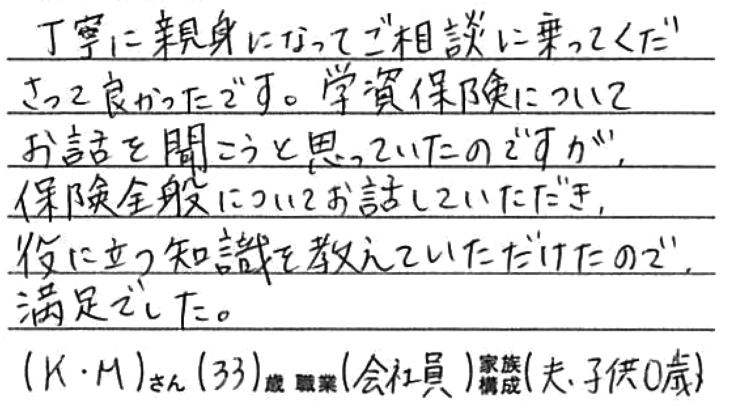 丁寧に親身になってご相談に乗ってくだ
さって良かったです。学資保険について
お話を聞こうと思っていたのですが、
保険全般についてお話していただき、
役に立つ知識を教えていただけたので、
満足でした。
(K・M)さん(33)歳 職業(会社員)家族構成(夫、子供0歳)